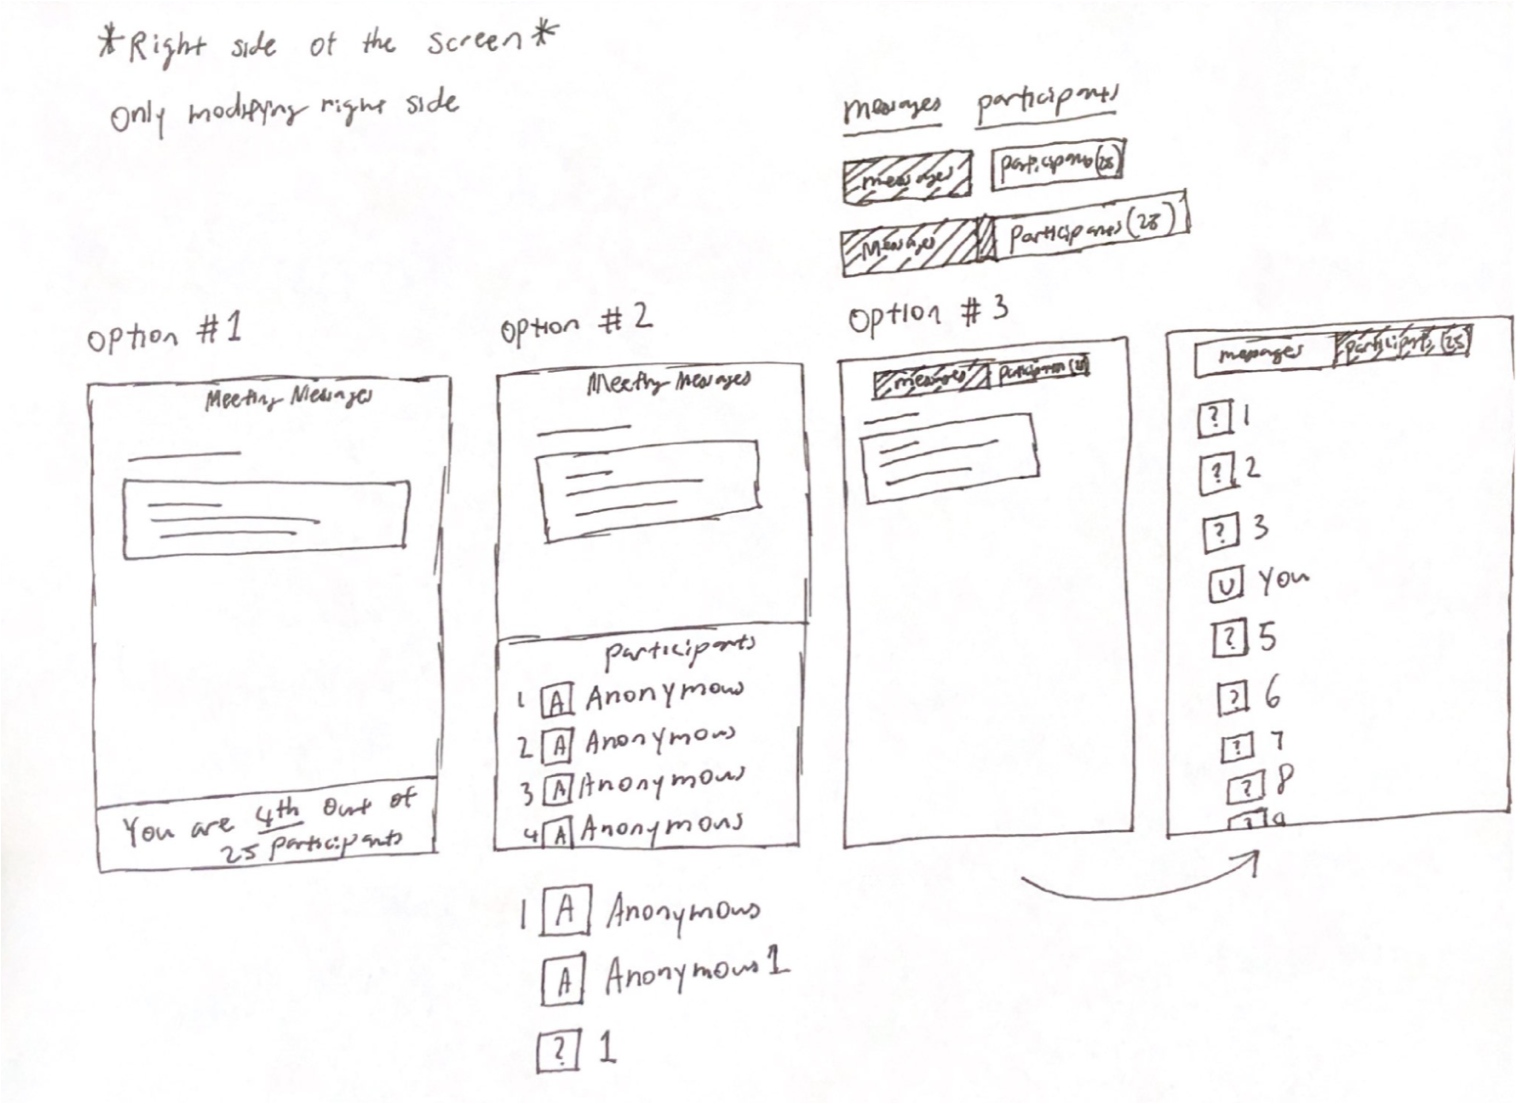 *Right side of the screen*
Only modifying right side
messages participants
messages participants (25)
Messages Participants (25)
Option #1
Meeting Messages
You are 4th out of
25 participants
Option #2
Meeting Messages
participants
1 A Anonymous
2 A Anonymous
3 A Anonymous
4 A Anonymous
1 A Anonymous
A Anonymous 1
? 1
Option #3
messages participants (25)
messages participants (25)
? 1
? 2
? 3
U You
? 5
? 6
? 7
? 8
? 9